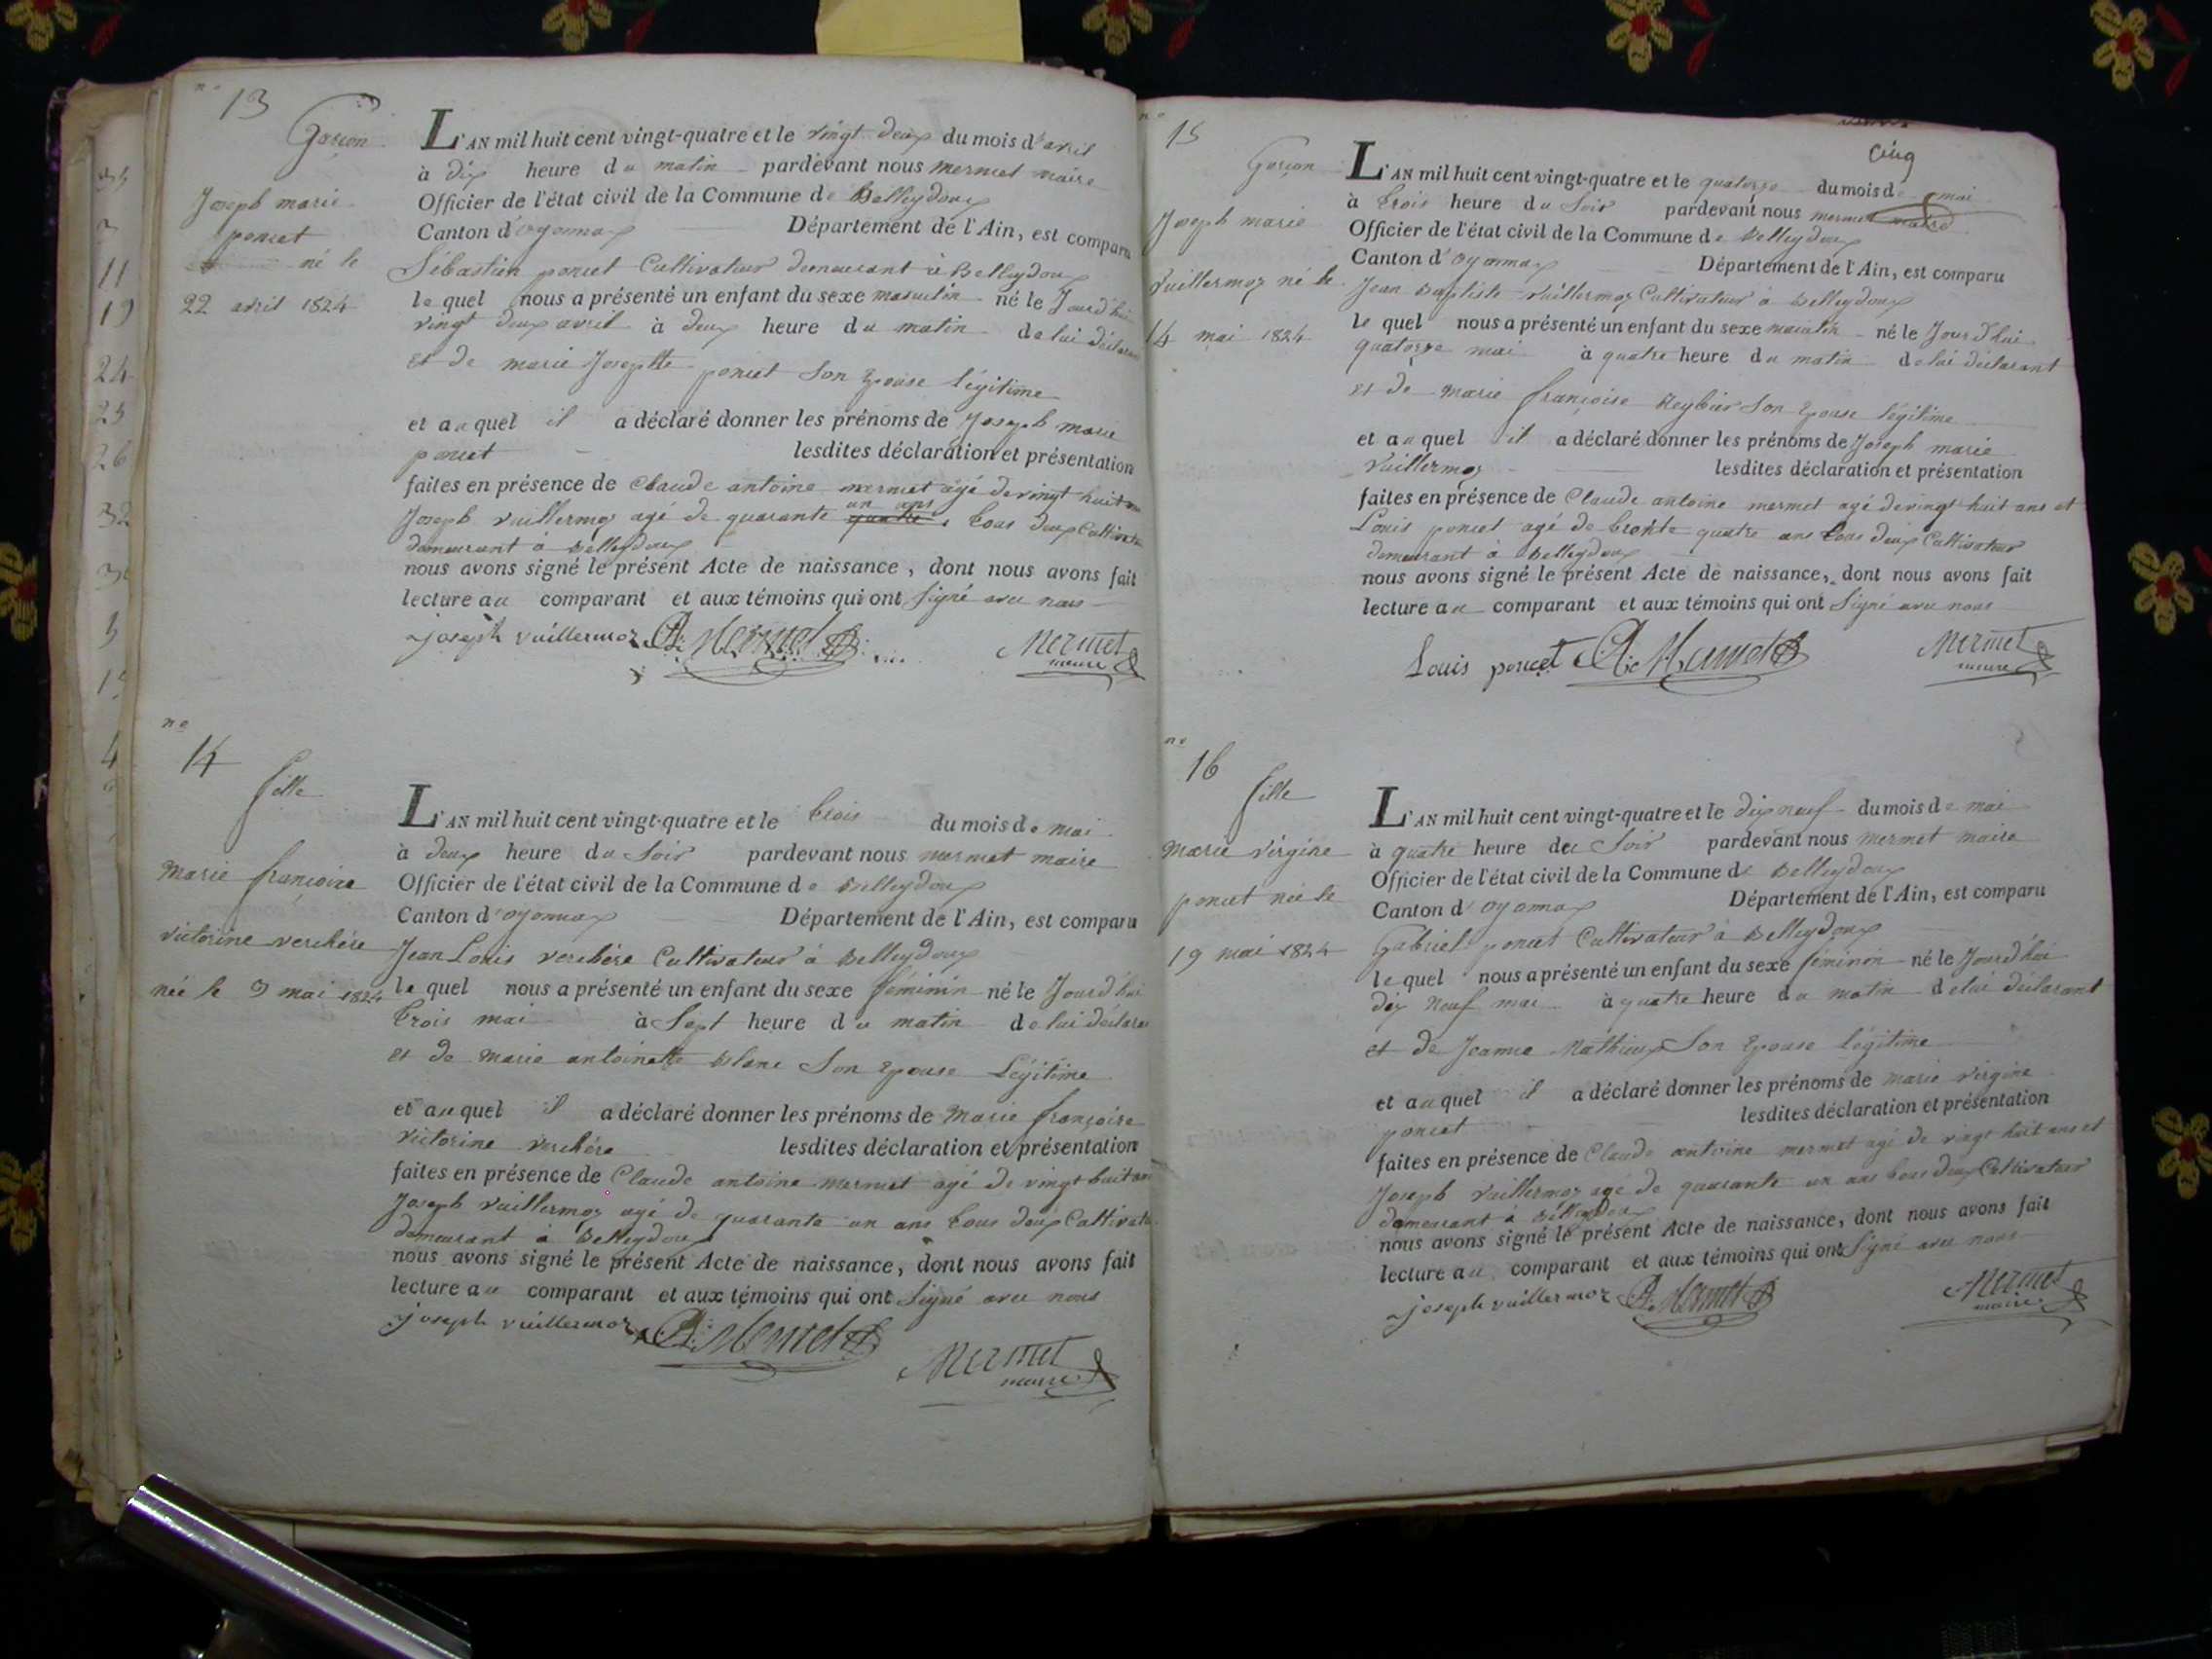 no 13
Garçon
Joseph marie
poncet
né le
22 avril 1824
L'AN mil huit cent vingt-quatre et le vingt deux du mois d'avril
à dix heure du matin pardevant nous mermet maire
Officier de l'état civil de la Commune de Belleydoux
Canton d'oyonnax Département de l'Ain, est comparu
Sébastien poncet Cultivateur demeurant à Belleydoux
le quel nous a présenté un enfant du sexe masculin né le Jourd'hui
vingt deux avril à deux heure du matin de lui déclarant
et de marie Josephte poncet Son Epouse légitime
et auquel il a déclaré donner les prénoms de Joseph marie
poncet lesdites déclaration et présentation
faites en présence de Claude antoine mermet agé de vingt huit ans
Joseph vuillermoz agé de quarante un ans tous deux Cultivateur
demeurant à Belleydoux
nous avons signé le présent Acte de naissance, dont nous avons fait
lecture au comparant et aux témoins qui ont Signé avec nous
joseph vuillermoz A. Mermet Mermet
maire
no 14
fille
marie françoise
victorine verchère
née le 3 mai 1824
L'AN mil huit cent vingt-quatre et le trois du mois de mai
à deux heure du Soir pardevant nous mermet maire
Officier de l'état civil de la Commune de Belleydoux
Canton d'oyonnax Département de l'Ain, est comparu
Jean Louis verchère Cultivateur à Belleydoux
le quel nous a présenté un enfant du sexe féminin né le Jourd'hui
trois mai à Sept heure du matin de lui déclarant
et de marie antoinette Blanc Son Epouse Légitime
et auquel il a déclaré donner les prénoms de Marie françoise
victorine verchère lesdites déclaration et présentation
faites en présence de Claude antoine mermet agé de vingt huit ans
Joseph vuillermoz agé de quarante un ans tous deux Cultivateur
demeurant à Belleydoux
nous avons signé le présent Acte de naissance, dont nous avons fait
lecture au comparant et aux témoins qui ont Signé avec nous
joseph vuillermoz A. Mermet
Mermet
maire
no 15
Garçon
Joseph marie
vuillermoz né le
14 mai 1824
cinq
L'AN mil huit cent vingt-quatre et le quatorze du mois de mai
à trois heure du Soir pardevant nous mermet maire
Officier de l'état civil de la Commune de Belleydoux
Canton d'oyonnax Département de l'Ain, est comparu
Jean Baptiste vuillermoz Cultivateur à Belleydoux
le quel nous a présenté un enfant du sexe masculin né le Jourd'hui
quatorze mai à quatre heure du matin de lui déclarant
et de marie françoise Reybier Son Epouse légitime
et auquel il a déclaré donner les prénoms de Joseph marie
vuillermoz lesdites déclaration et présentation
faites en présence de Claude antoine mermet agé de vingt huit ans et
Louis poncet agé de trente quatre ans tous deux Cultivateur
demeurant à Belleydoux
nous avons signé le présent Acte de naissance, dont nous avons fait
lecture au comparant et aux témoins qui ont Signé avec nous
Louis poncet A. Mermet Mermet
maire
no 16
fille
marie virgine
poncet née le
19 mai 1824
L'AN mil huit cent vingt-quatre et le dix neuf du mois de mai
à quatre heure du Soir pardevant nous mermet maire
Officier de l'état civil de la Commune de Belleydoux
Canton d'oyonnax Département de l'Ain, est comparu
Gabriel poncet Cultivateur à Belleydoux
le quel nous a présenté un enfant du sexe féminin né le Jourd'hui
dix neuf mai à quatre heure du matin de lui déclarant
et de Jeanne Mathieux Son Epouse légitime
et auquel il a déclaré donner les prénoms de marie virgine
poncet lesdites déclaration et présentation
faites en présence de Claude antoine mermet agé de vingt huit ans et
Joseph vuillermoz agé de quarante un ans tous deux Cultivateur
demeurant à Belleydoux
nous avons signé le présent Acte de naissance, dont nous avons fait
lecture au comparant et aux témoins qui ont Signé avec nous
joseph vuillermoz A. Mermet Mermet
maire